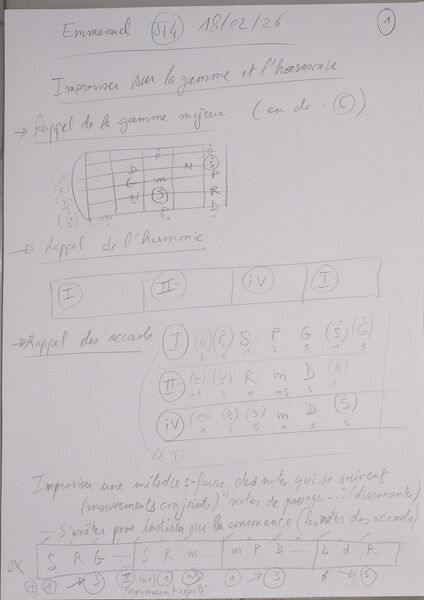 Emmanuel J14 18/02/26 1
Improviser sur la gamme et l'harmonie
→ Rappel de la gamme majeure (en do = C)
R G
D N S
G m P
N S R
m P D
→ Rappel de l'harmonie
I II- IV I
→ Rappel des accords
I (G) (P) S P G (S) (G)
3 5 1 3 5 1 3
II- (m) (P) R m D (R)
m3 5 1 m3 5 1
IV (m) m D (S)
1 3 5 1 3 5
I
Improviser une mélodie = faire des notes qui se suivent
(mouvements conjoints) "notes de passage" (dissonantes)
— S'arrêter pour insister sur la consonance (les notes des accords)
ex S R G — S R m — m P D — D d P —
I 1 → 3 II- 1 m3 1 → 3 → 5